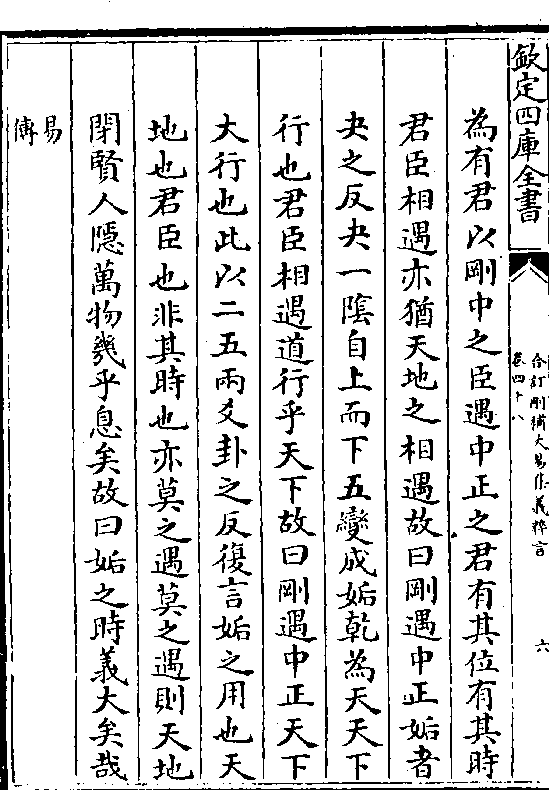 欽定四庫全書
合訂刪補大易集義粹言
卷四十八
六
為有君以剛中之臣遇中正之君有其位有其時
君臣相遇亦猶天地之相遇故曰剛遇中正姤者
夬之反夬一隂自上而下五變成姤乾為天天下
行也君臣相遇道行乎天下故曰剛遇中正天下
大行也此以二五兩爻卦之反復言姤之用也天
地也君臣也非其時也亦莫之遇莫之遇則天地
閉賢人隱萬物幾乎息矣故曰姤之時義大矣哉
易
傳